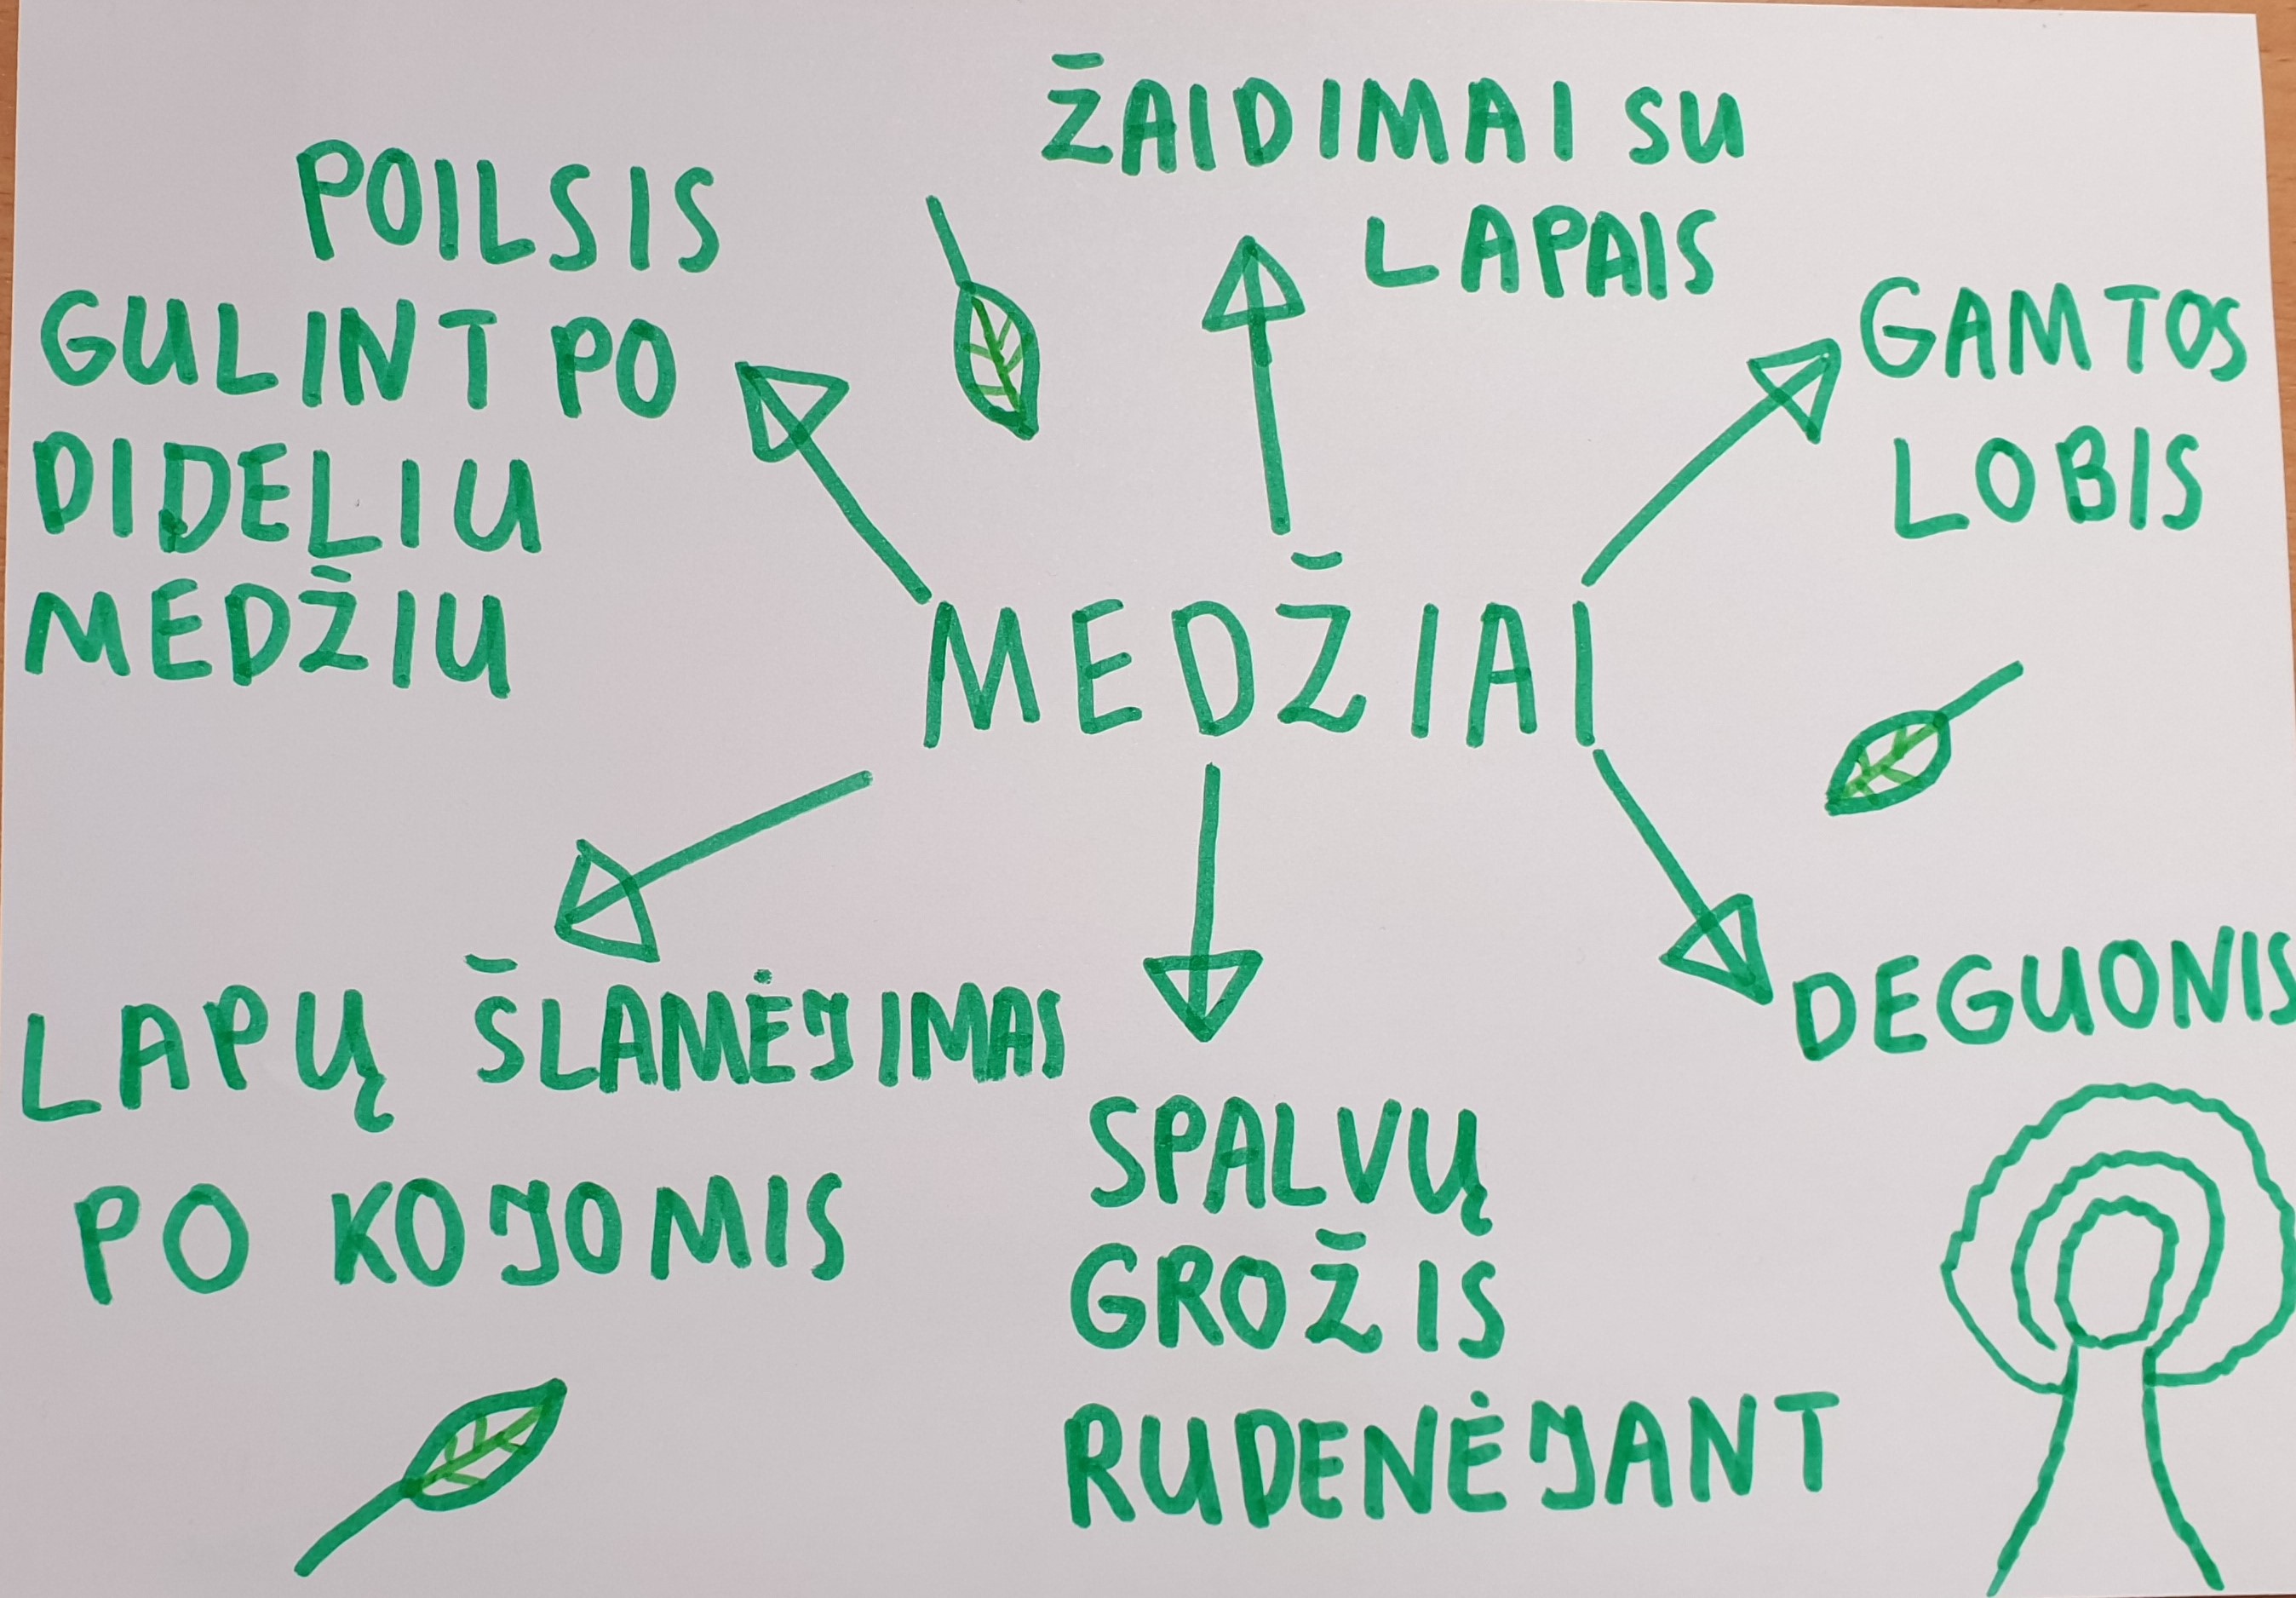 ŽAIDIMAI SU
LAPAIS
POILSIS
GULINT PO
DIDELIU
MEDŽIU
GAMTOS
LOBIS
MEDŽIAI
LAPŲ ŠLAMĖJIMAS
PO KOJOMIS
SPALVŲ
GROŽIS
RUDENĖJANT
DEGUONIS